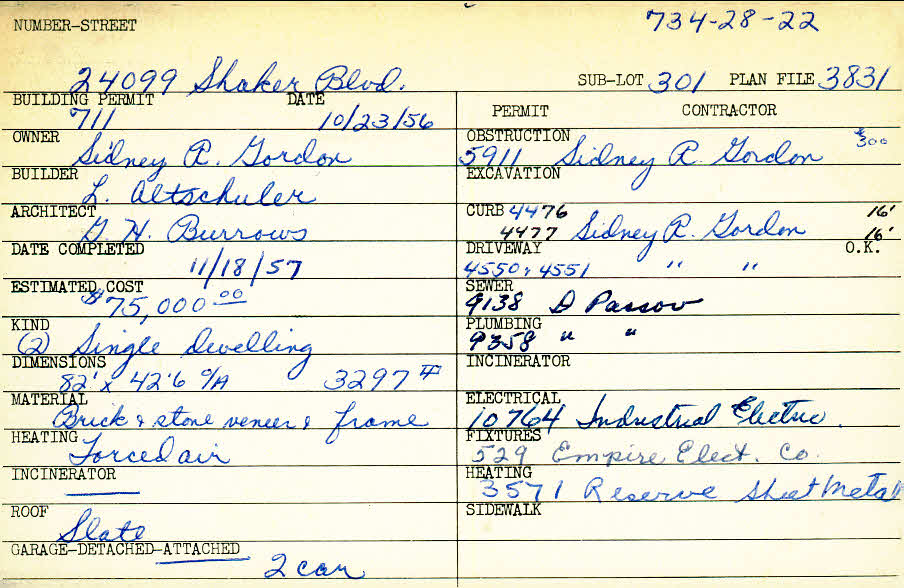 734-28-22
NUMBER-STREET
24099 Shaker Blvd.
SUB-LOT 301 PLAN FILE 3831
BUILDING PERMIT DATE
711 10/23/56
OWNER
Sidney R. Gordon
BUILDER
L. Altschuler
ARCHITECT
G. H. Burrows
DATE COMPLETED
11/18/57
ESTIMATED COST
$75,000 00
KIND
(2) Single dwelling
DIMENSIONS
82' x 42'6 O/A 3297 #
MATERIAL
Brick & stone veneer & frame
HEATING
Forced air
INCINERATOR
ROOF
Slate
GARAGE-DETACHED-ATTACHED
2 car
PERMIT CONTRACTOR
OBSTRUCTION
5911 Sidney R. Gordon $300
EXCAVATION
CURB 4476 16'
4477 Sidney R. Gordon 16'
DRIVEWAY O.K.
4550 & 4551 " "
SEWER
9138 D Passov
PLUMBING
9358 " "
INCINERATOR
ELECTRICAL
10764 Industrial Electric
FIXTURES
529 Empire Elect. Co.
HEATING
3571 Reserve Sheet Metal
SIDEWALK